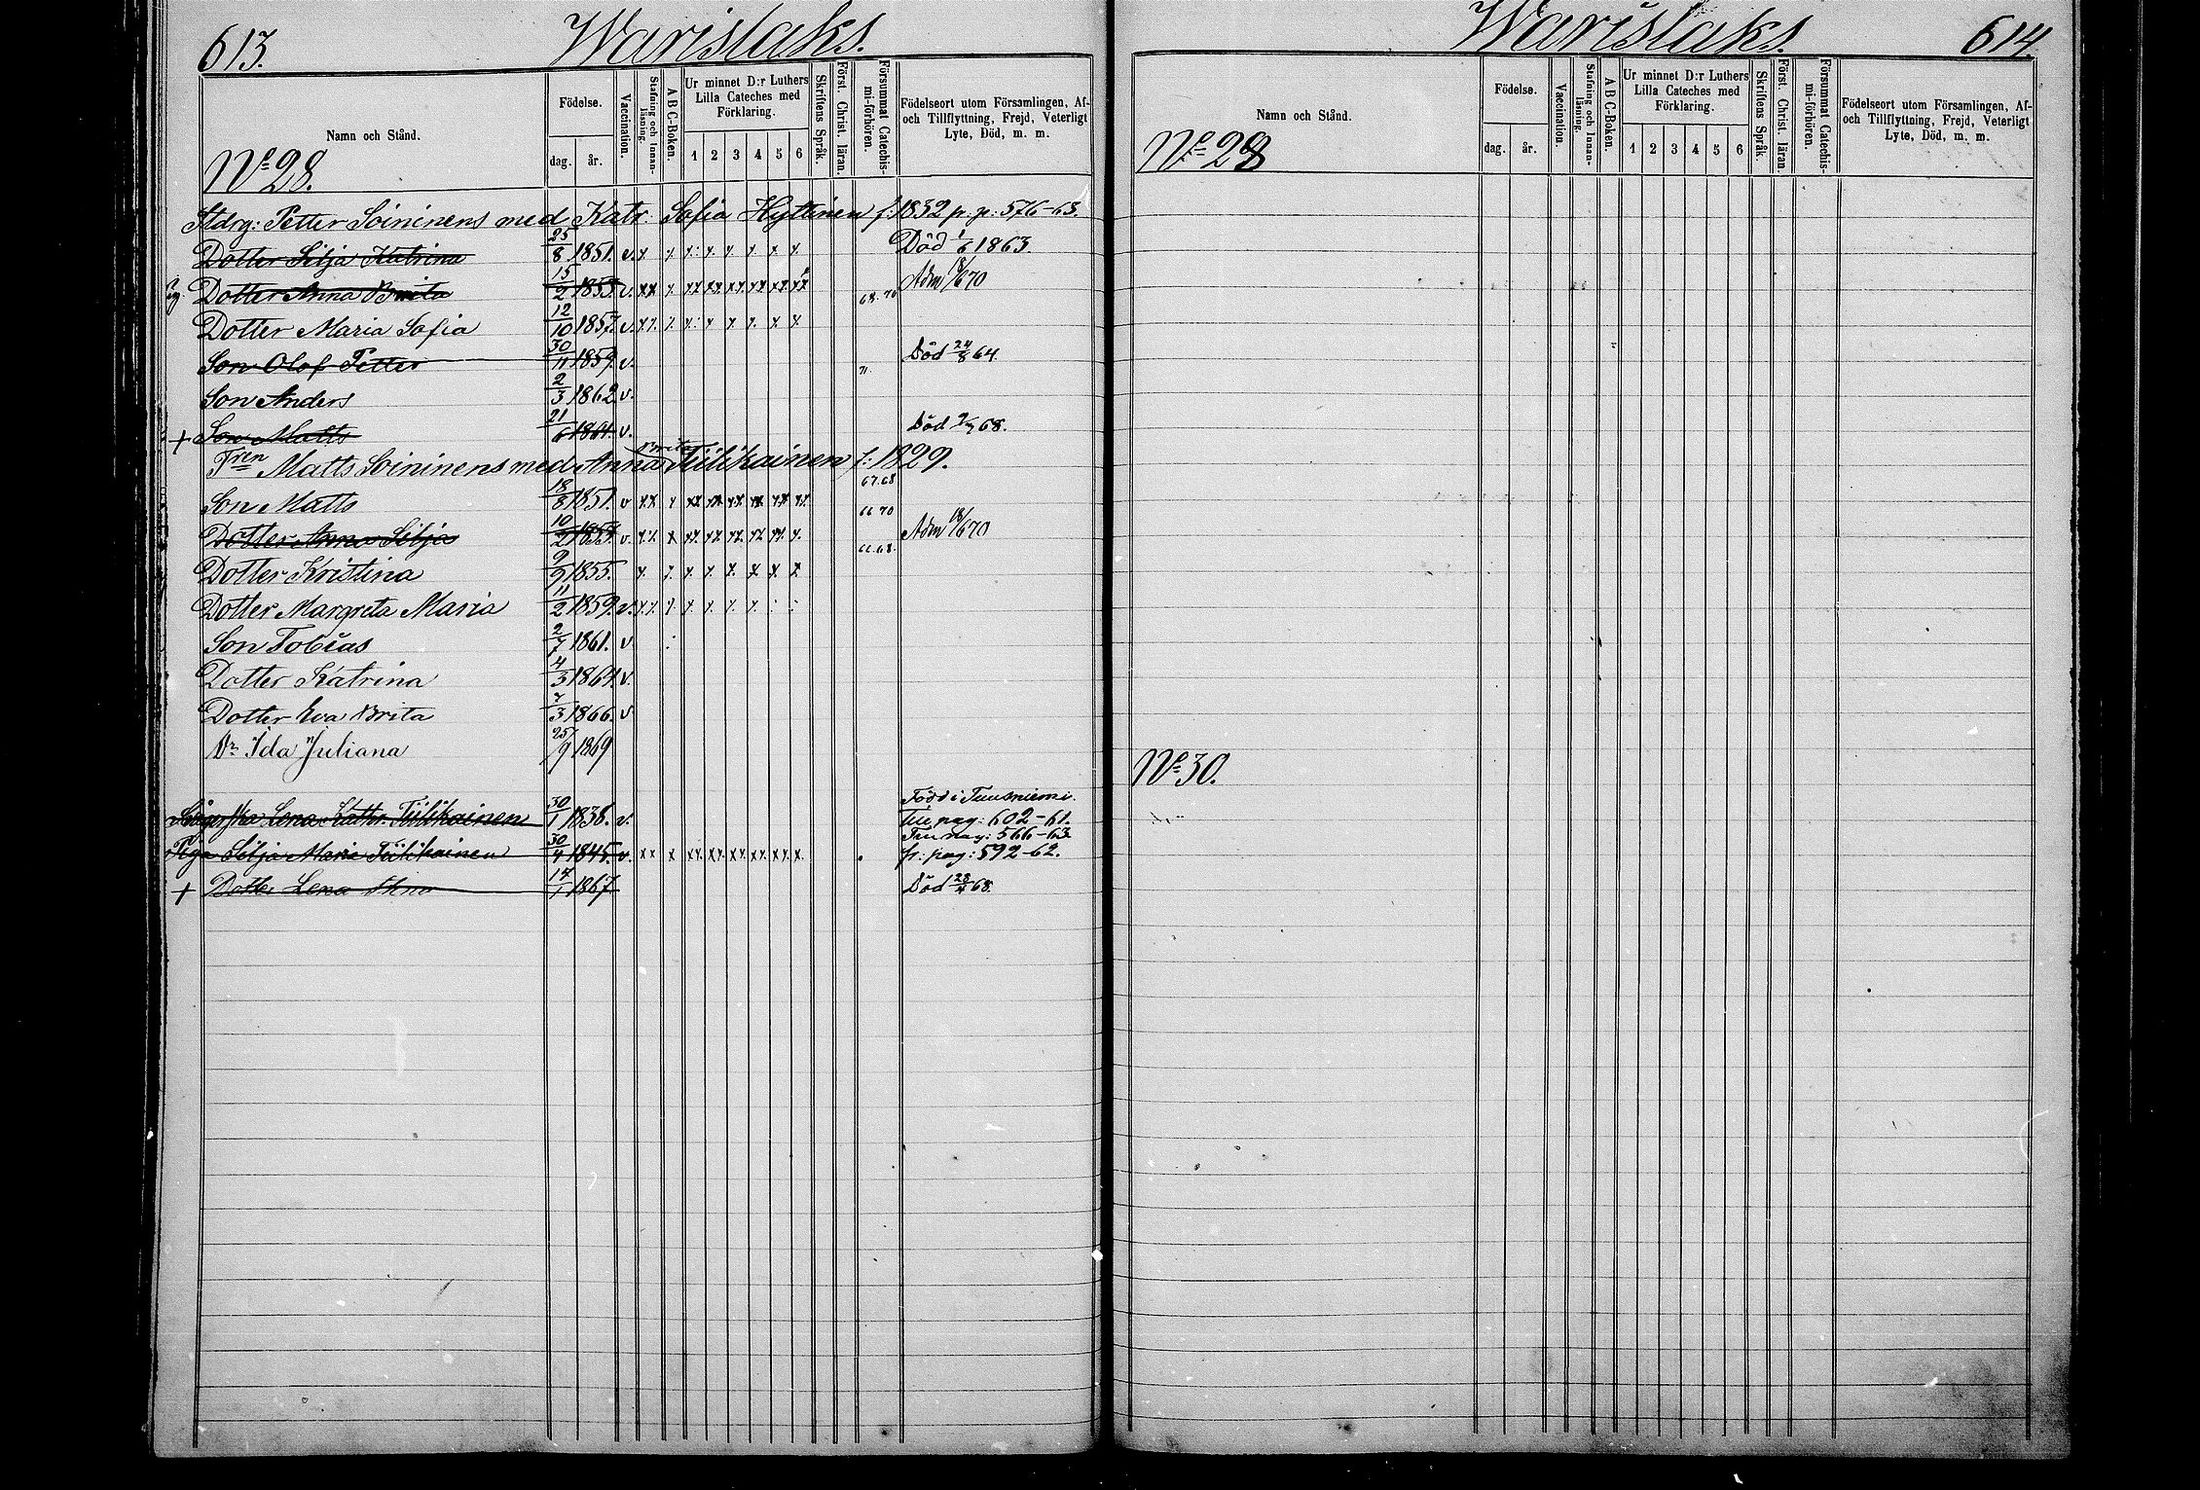 613. Warislaks.
Namn och Stånd.
Födelse.
dag. år.
Vaccination.
Stafning och Innan-läsning.
A B C-Boken.
Ur minnet D:r Luthers Lilla Cateches med Förklaring.
1 2 3 4 5 6
Skriftens Språk.
Först. Christ. läran.
Försummat Catechis-mi-förhören.
Födelseort utom Församlingen, Af- och Tillflyttning, Frejd, Veterligt Lyte, Död, m. m.
No 28.
Stdrg: Petter Soininens med Katr. Sofia Hyttinen f: 1832 fr. p: 576-63.
Dotter Silja Katrina 25/8 1851. v. x x x x x x x x Död 1/6 1863.
Dotter Anna Brita 15/2 1855. v. xx x xx xx xx xx xx xx 68. 70 Adm 18/6 70
Dotter Maria Sofia 12/10 1857. v. xx x x x x x x x
Son Olof Petter 30/11 1859. v. 71. Död 24/8 64.
Son Anders 2/3 1862 v.
+ Son Matts 21/6 1864. v. Död 68.
Fren Matts Soininens med Anna Brita Tiilikainen f: 1829.
67. 68
Son Matts 18/8 1851. v xx x xx xx xx xx xx xx
66 70
Dotter Anna Silja 10/2 1853. v. xx x xx xx xx xx xx x. Adm 18/6 70
66. 68.
Dotter Kristina 9/9 1855. x. x. x. x. x. x x. x
Dotter Margreta Maria 11/2 1859. v. xx. x. x. x. x. x.
Son Tobias 2/7 1861. v.
Dotter Katrina 4/3 1864. v.
Dotter Eva Brita 7/3 1866. v.
Dr Ida Juliana 25/9 1869
Född i Tuusniemi.
Lena Kathr. Tiilikainen 30/1 1838. v. Till pag: 602-61.
Till pag: 566-63
Piga Silja Maria Tiilikainen 30/4 1845. v. xx x xx xx xx xx xx x. fr: pag: 592-62.
+ Dotter Lena Stina 17/1 1867 Död 23/4 68.
Warislaks. 614.
Namn och Stånd.
Födelse.
dag. år.
Vaccination.
Stafning och Innan-läsning.
A B C-Boken.
Ur minnet D:r Luthers Lilla Cateches med Förklaring.
1 2 3 4 5 6
Skriftens Språk.
Först. Christ. läran.
Försummat Catechis-mi-förhören.
Födelseort utom Församlingen, Af- och Tillflyttning, Frejd, Veterligt Lyte, Död, m. m.
No 29
No 30.